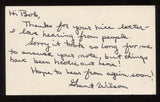 Hi Bob,
Thanks for your nice letter-
I love hearing from people.
Sorry it took so long for me
to answer your note, but things
have been hectic here!
Hope to hear from again soon!
Grant Wilson